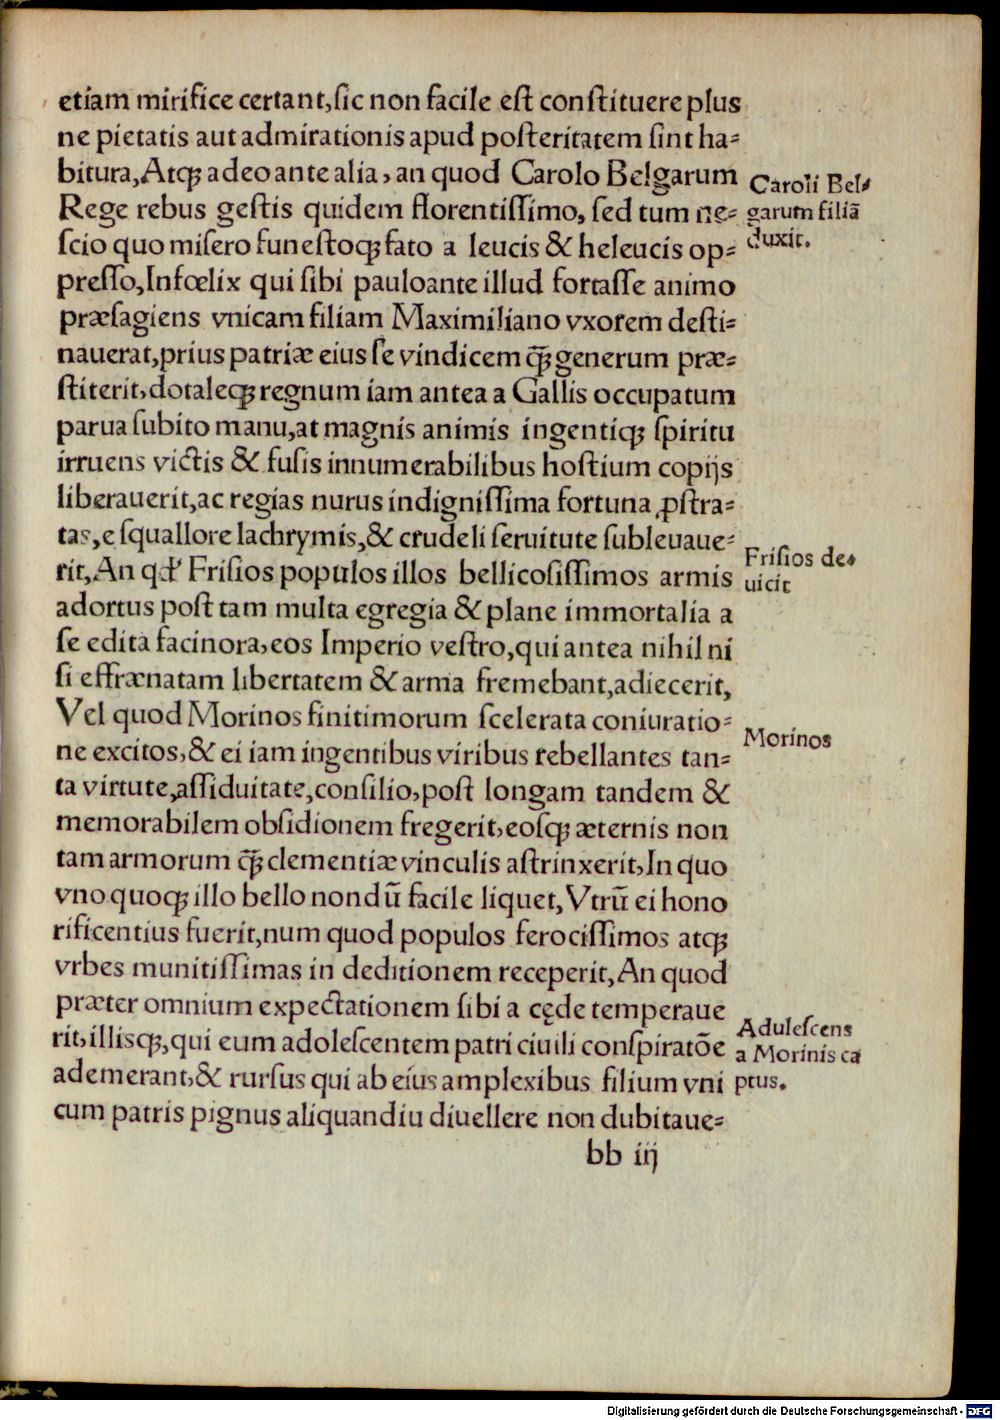 etiam mirifice certant,ſic non facile eſt conſtituere plus
ne pietatis aut admirationis apud poſteritatem ſint ha⸗
bitura,Atqꝫ adeo ante alia, an quod Carolo Belgarum
Rege rebus geſtis quidem florentiſſimo, ſed tum ne⸗
ſcio quo miſero funeſtoqꝫ fato a leucis & heleucis op⸗
preſſo,Infœlix qui ſibi pauloante illud fortaſſe animo
præſagiens vnicam filiam Maximiliano vxorem deſti⸗
nauerat,prius patriæ eius ſe vindicem q̃ꝫ generum præ⸗
ſtiterit,dotaleqꝫ regnum iam antea a Gallis occupatum
parua ſubito manu,at magnis animis ingentiqꝫ ſpiritu
irruens victis & fuſis innumerabilibus hoſtium copijs
liberauerit,ac regias nurus indigniſſima fortuna ꝓſtra⸗
tas,e ſquallore lachrymis,& crudeli ſeruitute ſubleuaue⸗
rit,An qď Friſios populos illos bellicoſiſſimos armis
adortus poſt tam multa egregia & plane immortalia a
ſe edita facinora,eos Imperio veſtro,qui antea nihil ni
ſi effrænatam libertatem & arma fremebant,adiecerit,
Vel quod Morinos finitimorum ſcelerata coniuratio⸗
ne excitos,& ei iam ingentibus viribus rebellantes tan⸗
ta virtute,aſſiduitate,conſilio,poſt longam tandem &
memorabilem obſidionem fregerit,eoſqꝫ æternis non
tam armorum q̃ꝫ clementiæ vinculis aſtrinxerit,In quo
vno quoqꝫ illo bello nondū facile liquet,Vtrū ei hono
rificentius fuerit,num quod populos ferociſſimos atqꝫ
vrbes munitiſſimas in deditionem receperit,An quod
præter omnium expectationem ſibi a cęde temperaue
rit,illisqꝫ,qui eum adoleſcentem patri ciuili conſpiratōe
ademerant,& rurſus qui ab eius amplexibus filium vni
cum patris pignus aliquandiu diuellere non dubitaue⸗
bb iij
Caroli Bel⸗
garum filiā
duxit.
Friſios de⸗
uicit
Morinos
Aduleſcens
a Morinis ca
ptus.
Digitalisierung gefördert durch die Deutsche Forschungsgemeinschaft - DFG